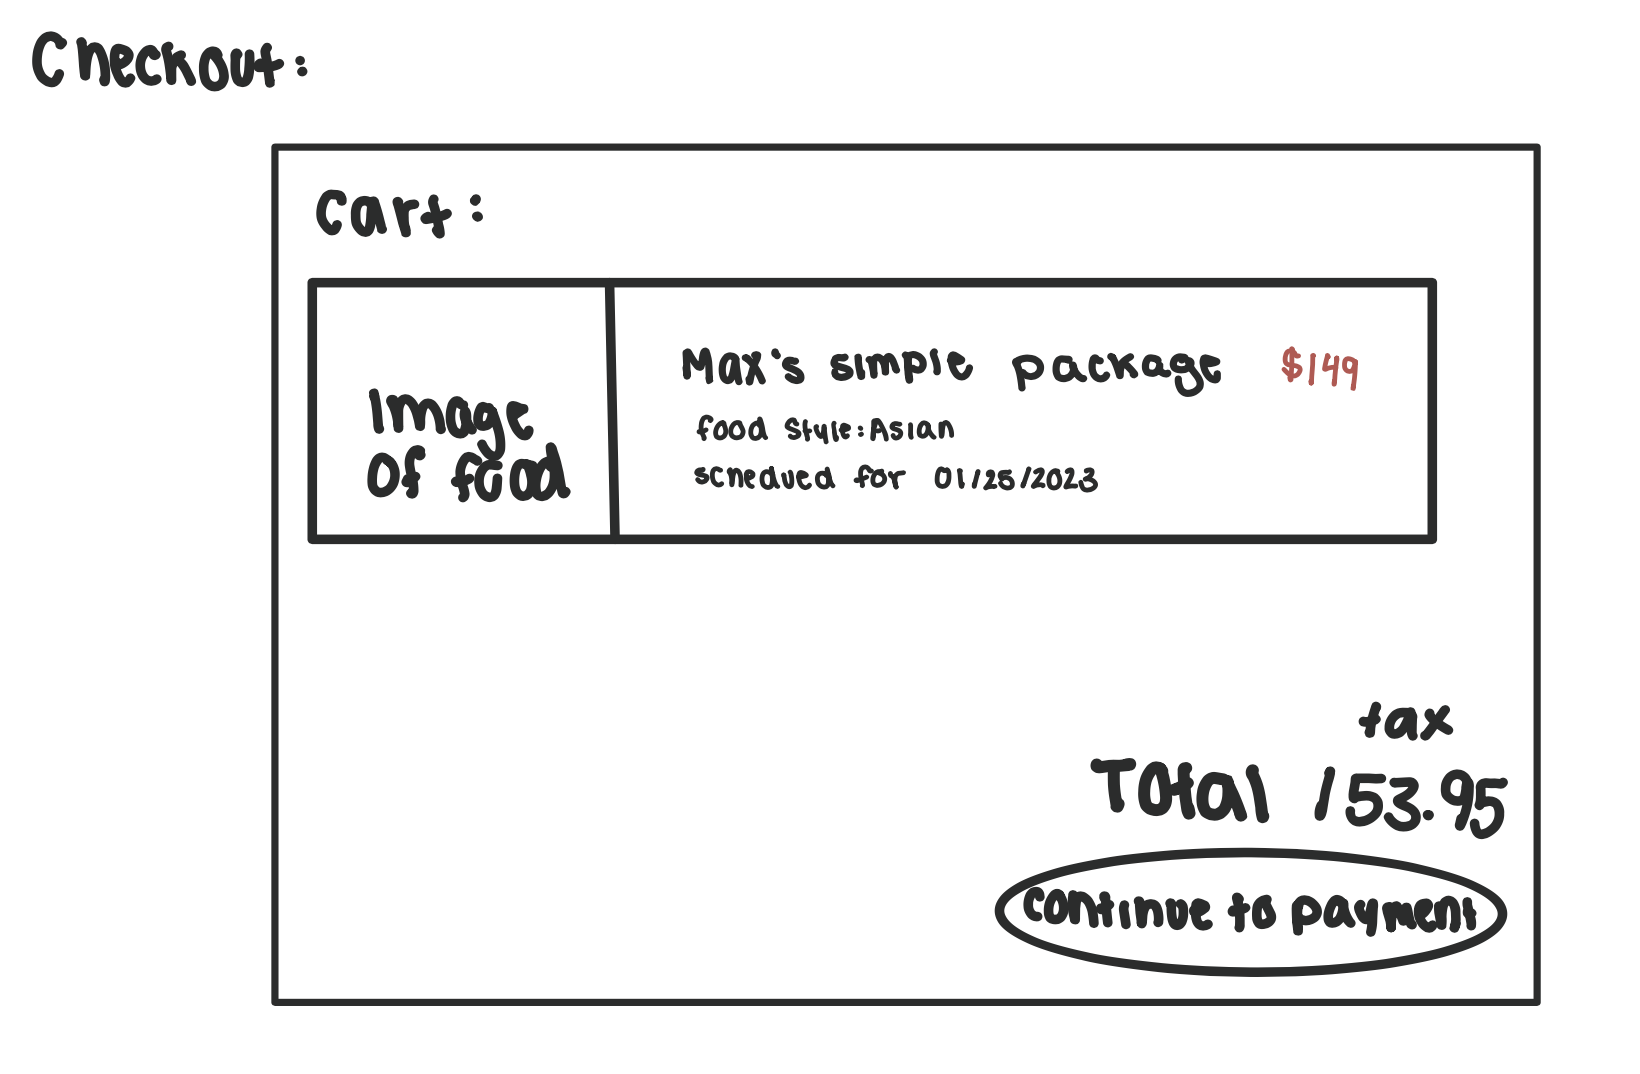 Checkout:
Cart:
Image
of food
Max's simple package $149
food Style: Asian
schedued for 01/25/2023
tax
Total 153.95
continue to payment